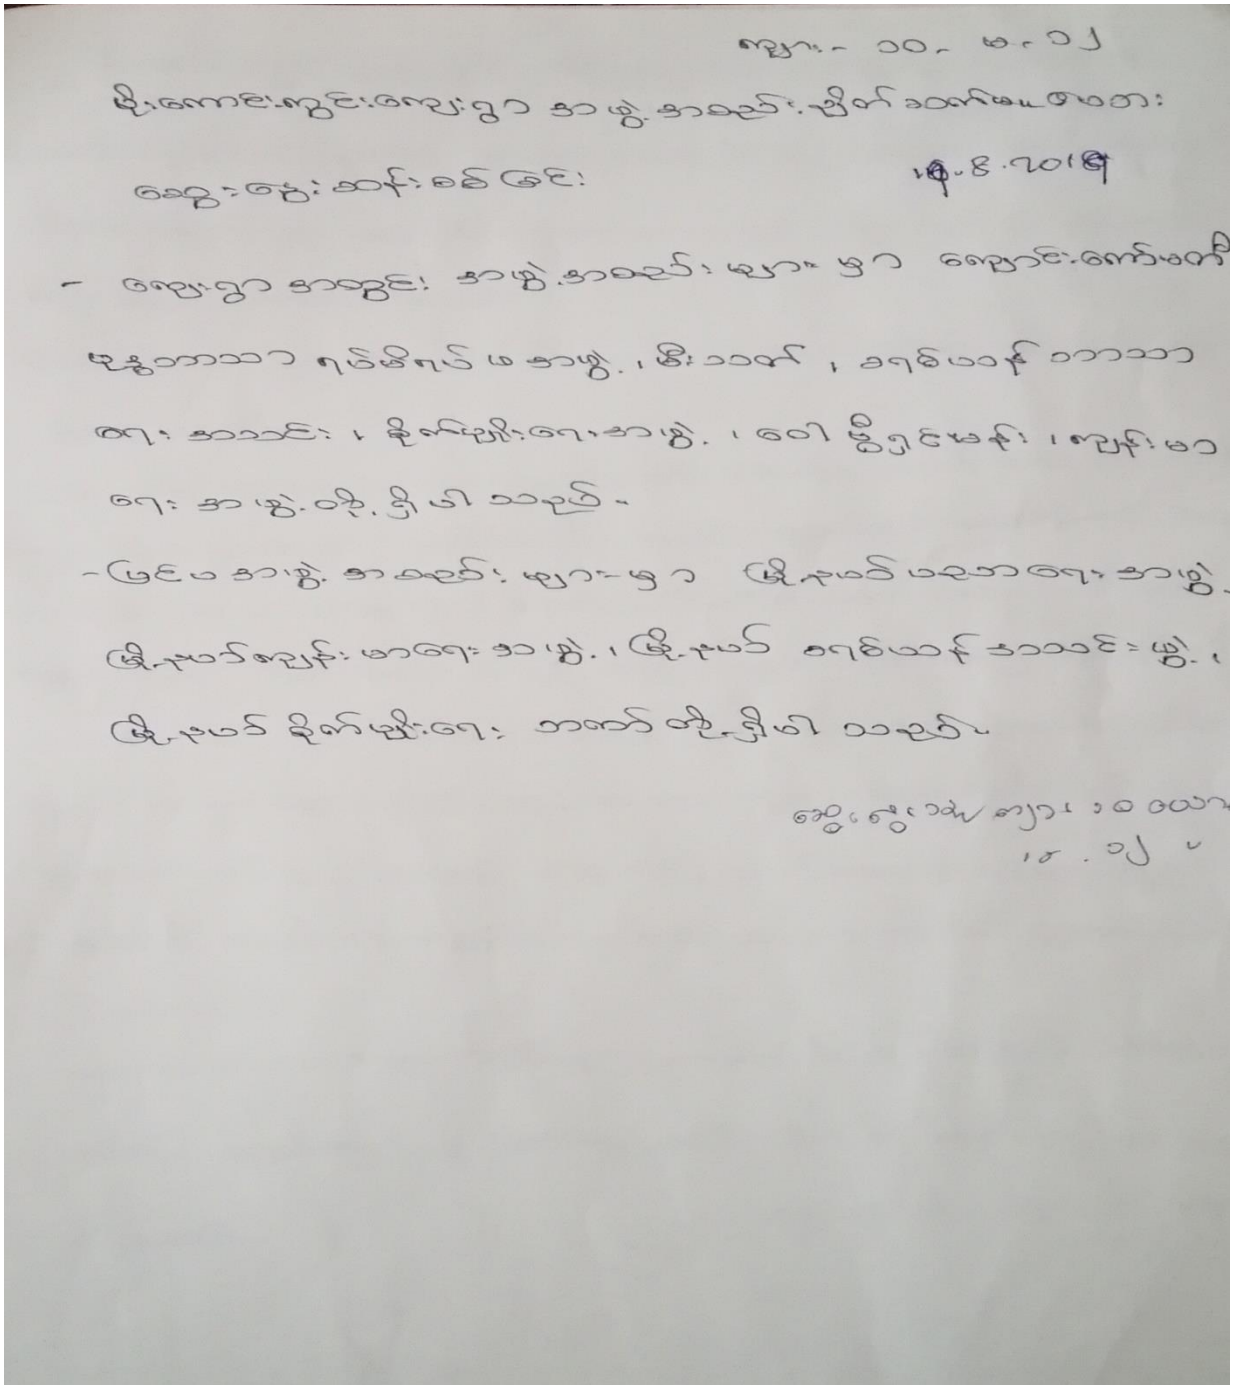 ကျား - ၁၀ - မ - ၁၂
မိုးကောင်းတွင်းကျေးရွာ အဖွဲ့အစည်းချိတ်ဆက်မှု
ဆွေးနွေးဆန်းစစ်ခြင်း 8.201
- ကျေးရွာအတွင်း အဖွဲ့အစည်းများမှာ ကျောင်းကော်မတီ
ဗုဒ္ဓဘာသာ ရပ်မိရပ်ဖအဖွဲ့၊ မီးသတ်၊ ခရစ်ယာန်ဘာသာ
ရေးအသင်း၊ စိုက်ပျိုးရေးအဖွဲ့၊ ပေါ်ဦးရှင်မန်း၊ ကျန်းမာ
ရေးအဖွဲ့တို့ရှိပါသည်။
- ပြင်ပအဖွဲ့အစည်းများမှာ မြို့နယ်ပညာရေးအဖွဲ့
မြို့နယ်ကျန်းမာရေးအဖွဲ့၊ မြို့နယ် ခရစ်ယာန်အသင်းဖွဲ့၊
မြို့နယ်စိုက်ပျိုးရေး တို့ရှိပါသည်။
ဆွေးနွေးသူ ကျား ၁၀ ယောက်
မ ၁၂